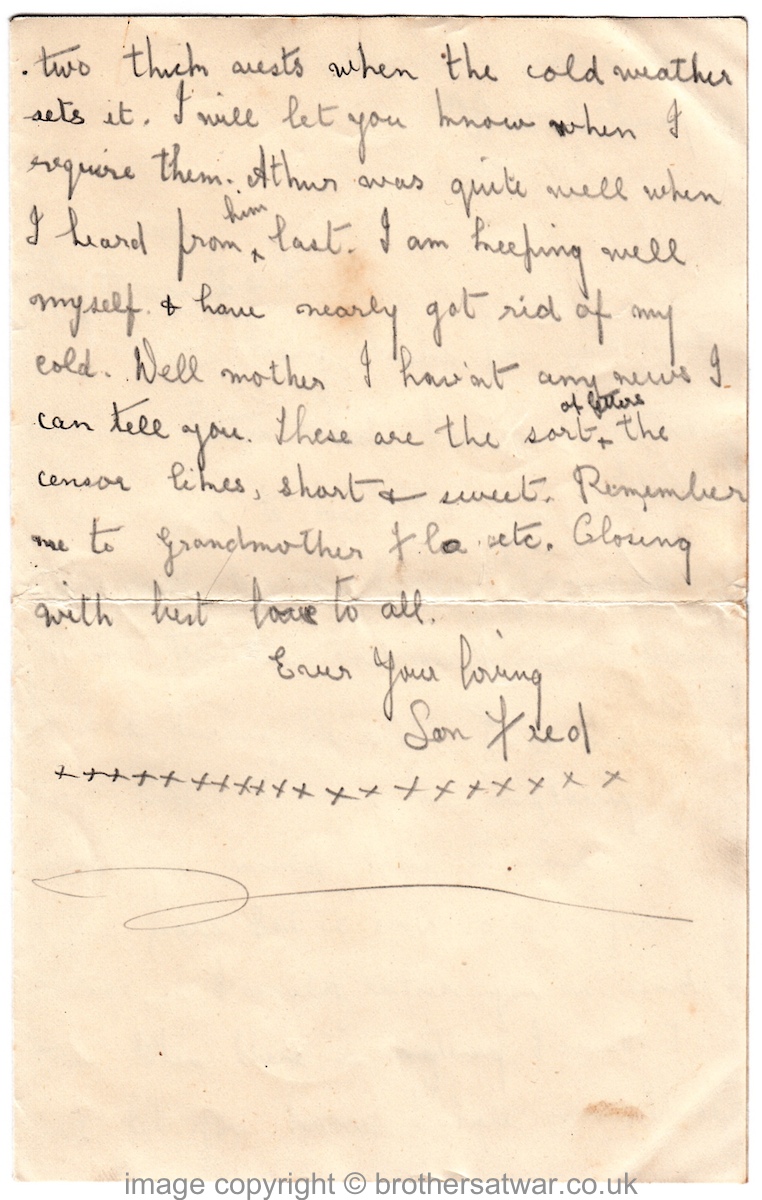 two thick vests when the cold weather
sets it. I will let you know when I
require them. Athur was quite well when
I heard from him last. I am keeping well
myself. & have nearly got rid of my
cold. Well mother I hav'nt any news I
can tell you. These are the sort of letters the
censor likes, short & sweet. Remember
me to Grandmother Flo etc. Closing
with best love to all.
Ever Your loving
Son Fred
x x x x x x x x x x x x x x x x x x x x x x
image copyright © brothersatwar.co.uk